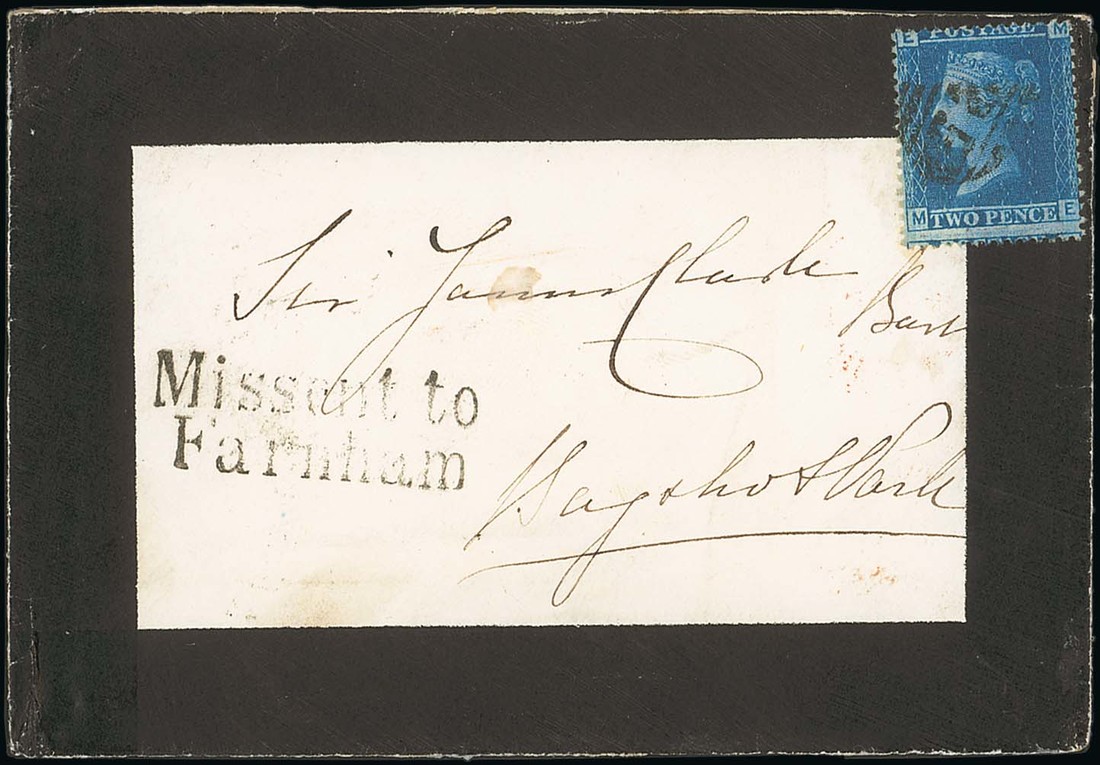 E POSTAGE M
M TWO PENCE E
Sir James Clark
Bart
Missent to
Farnham
Bagshot Park